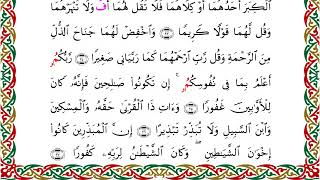 ٱلْكِبَرَ أَحَدُهُمَا أَوْ كِلَاهُمَا فَلَا تَقُل لَّهُمَا أُفٍّ وَلَا تَنْهَرْهُمَا
وَقُل لَّهُمَا قَوْلًا كَرِيمًا ۝ وَٱخْفِضْ لَهُمَا جَنَاحَ ٱلذُّلِّ
مِنَ ٱلرَّحْمَةِ وَقُل رَّبِّ ٱرْحَمْهُمَا كَمَا رَبَّيَانِي صَغِيرًا ۝ رَّبُّكُمُۥ
أَعْلَمُ بِمَا فِي نُفُوسِكُمُۥ ۚ إِن تَكُونُوا۟ صَٰلِحِينَ فَإِنَّهُۥ كَانَ
لِلْأَوَّٰبِينَ غَفُورًا ۝ وَءَاتِ ذَا ٱلْقُرْبَىٰ حَقَّهُۥ وَٱلْمِسْكِينَ
وَٱبْنَ ٱلسَّبِيلِ وَلَا تُبَذِّرْ تَبْذِيرًا ۝ إِنَّ ٱلْمُبَذِّرِينَ كَانُوٓا۟
إِخْوَٰنَ ٱلشَّيَٰطِينِ ۖ وَكَانَ ٱلشَّيْطَٰنُ لِرَبِّهِۦ كَفُورًا ۝